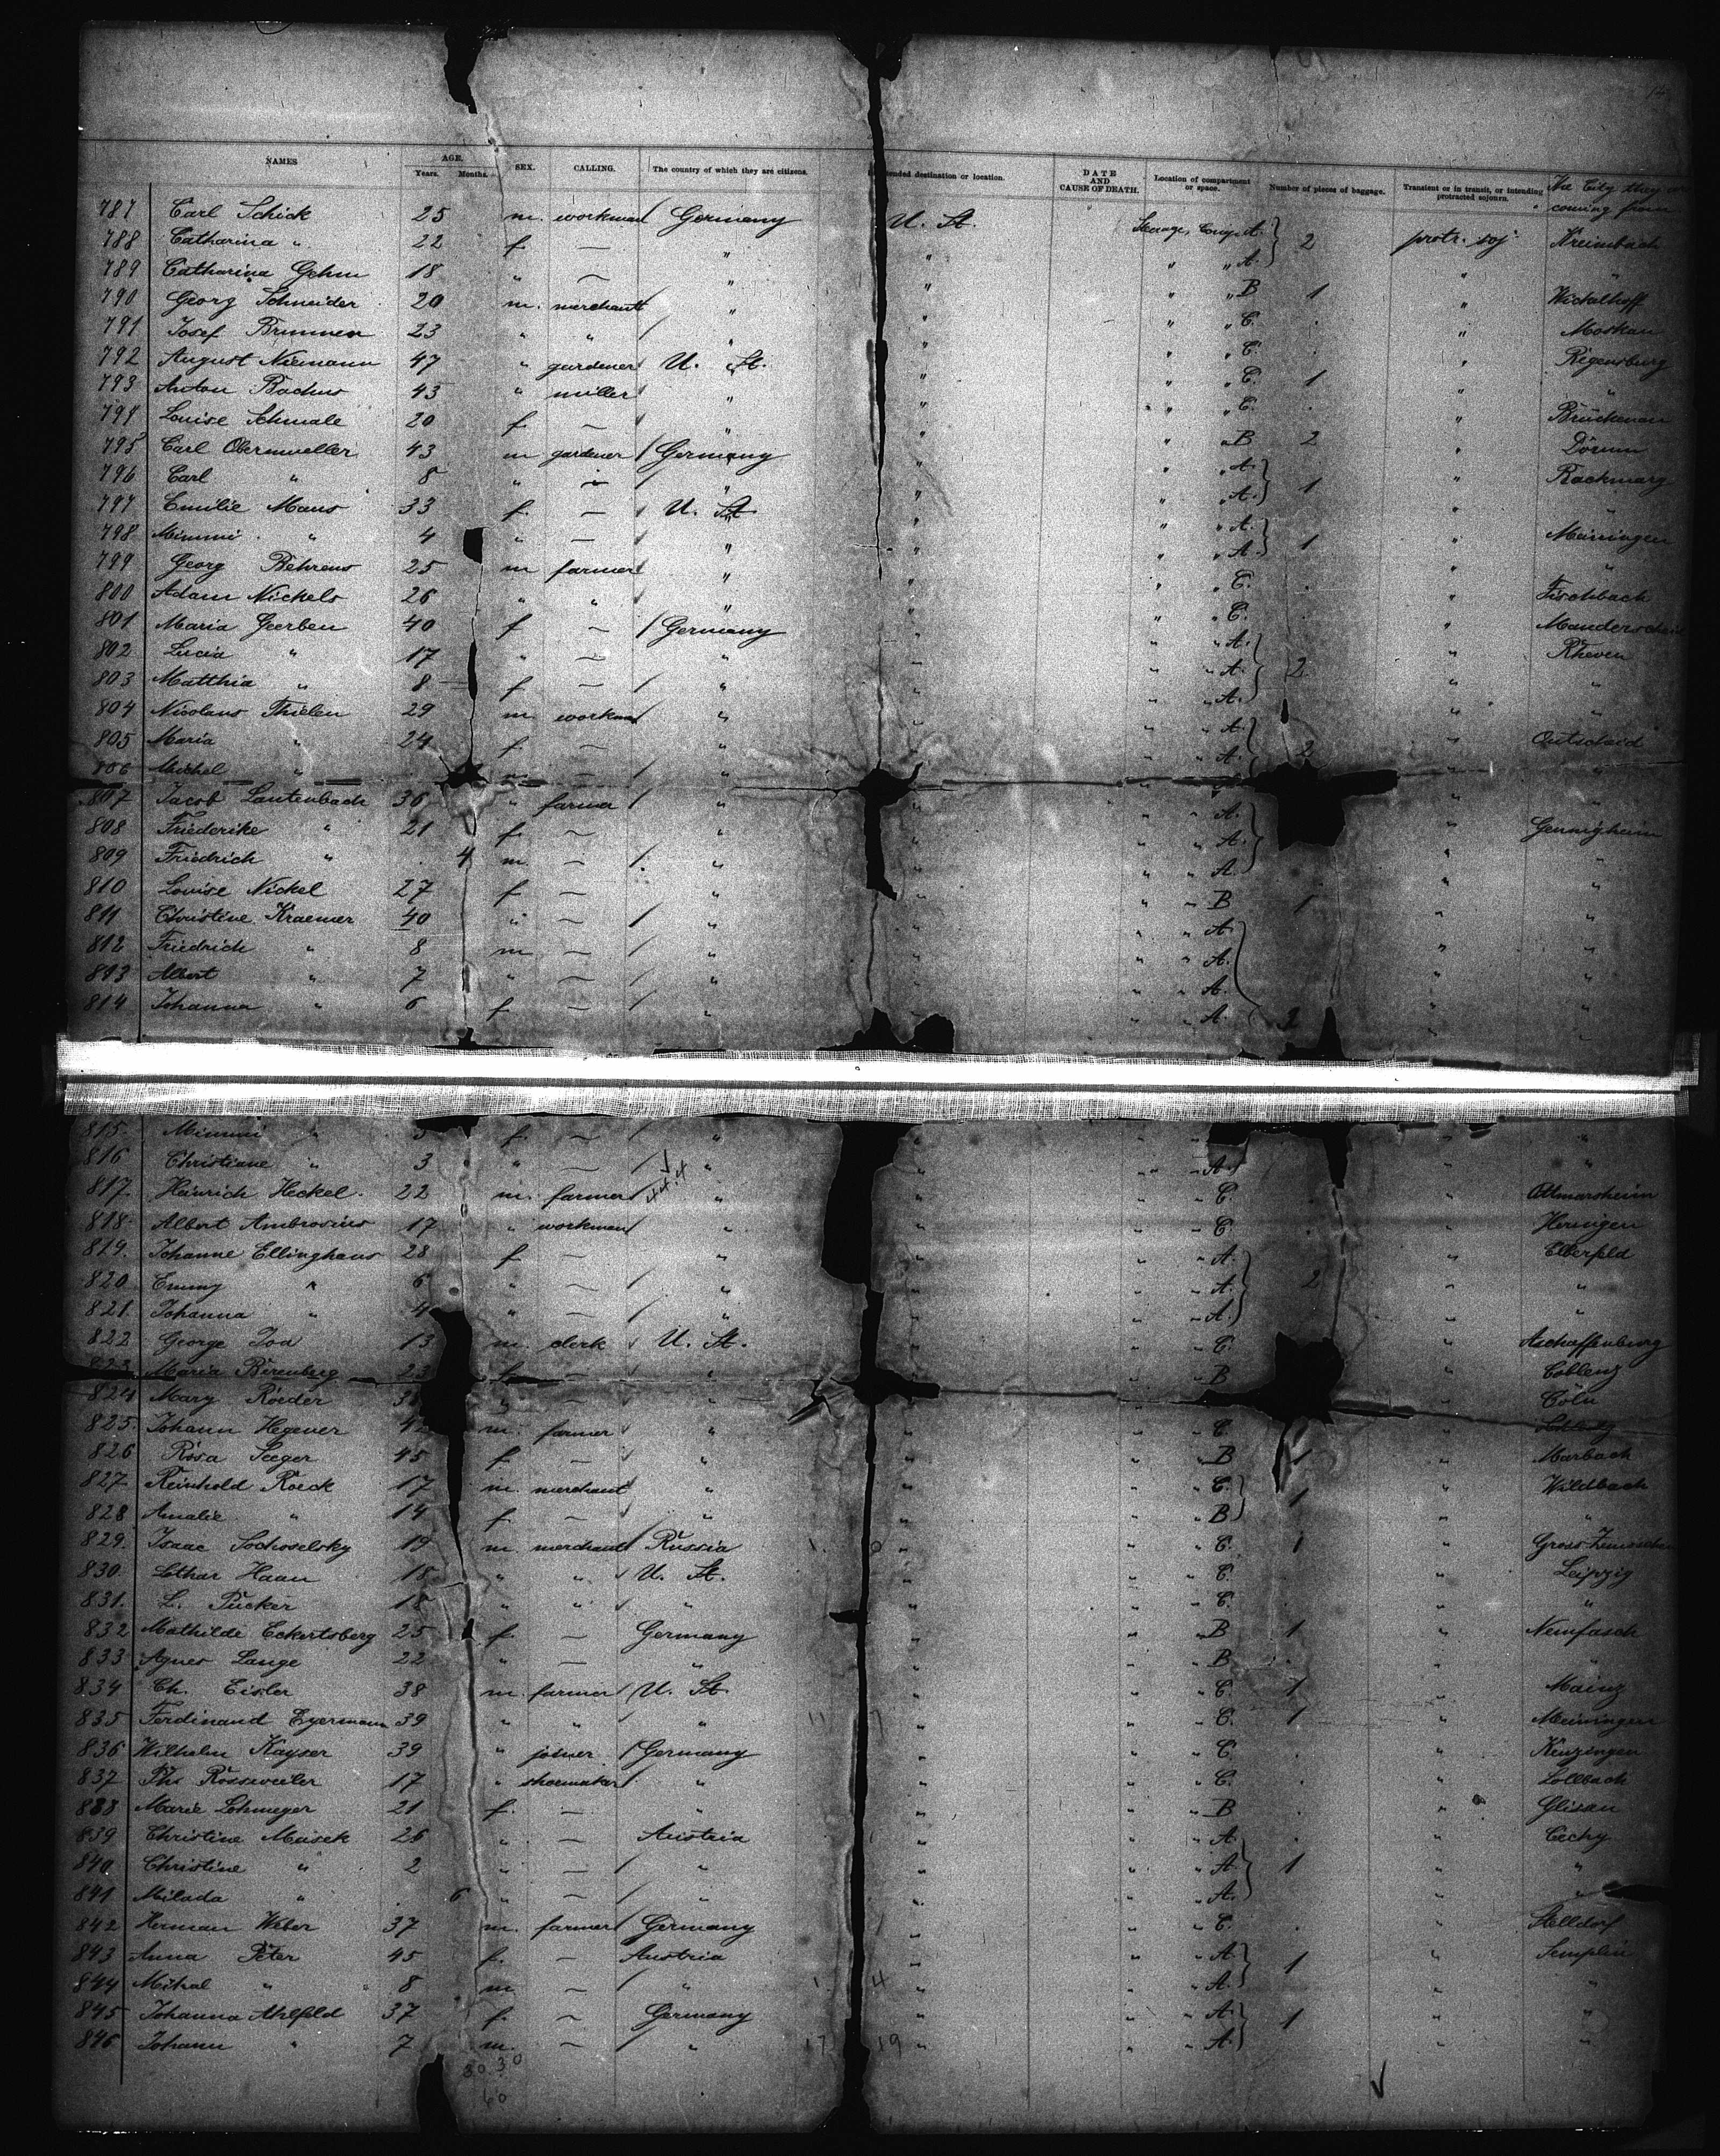 14
NAMES AGE. Years. Months. SEX. CALLING. The country of which they are citizens. ended destination or location. DATE AND CAUSE OF DEATH. Location of compartment or space. Number of pieces of baggage. Transient or in transit, or intending protracted sojourn. The City they are coming from
787 Carl Schick 25 m. workman Germany U. St. Steerage, Compt. A. 2 protr. soj. Kreimbach
788 Catharina " 22 f. — " " " " A. " "
789 Catharina Gehm 18 " — " " " " B 1 " Wickelhoff
790 Georg Schneider 20 m. merchant " " " " C. . " Moskau
791 Josef Brunner 23 " " " " " " C. " Regensburg
792 August Niemann 47 " gardener U. St. " " " C. 1 " "
793 Anton Bachus 43 " miller " " " " C. . " Brückenau
794 Louise Schmale 20 f. — " " " " B 2 " Dörum
795 Carl Obermueller 43 m gardener Germany " " " A. 1 "
796 Carl " 8 " — " " " " A. " "
797 Emilie Maus 33 f. — U. St. " " " A. 1 " Meiningen
798 Mimmi " 4 " — " " " " A. " "
799 Georg Behrens 25 m farmer " " " " C. . " Fischbach
800 Adam Nickels 26 " " " " " " C. . " Manderscheid
801 Maria Gerben 40 f — Germany " " " A. 2 " Rheven
802 Lucia " 17 " — " " " " A. " "
803 Matthia " 8 f — " " " " A. " "
804 Nicolaus Thielen 29 m workman " " " " A. 2 " Outscheid
805 Maria " 24 f. — " " " " A. " "
806 Michel " m. — " "
807 Jacob Lautenbach 36 " farmer " " " " A. " Gemmigheim
808 Friederike " 21 f. — " " " " A. " "
809 Friedrich " . 4 m. — " " " " A. " "
810 Louise Nickel 27 f — " " " " B 1 " "
811 Christine Kraemer 40 " — " " " " A. " "
812 Friedrich " 8 m — " " " " A. " "
813 Albert " 7 " — " " " " A. " "
814 Johanna " 6 f. — " " " " A. 2 " "
815. Mimmi " 5 f. — " " " "
816 Christiane " 3 " — " " " " A. " "
817. Heinrich Heckel. 22 m. farmer " " " " C. . " Ottmarsheim
818. Albert Ambrosius 17 " workman " " " " C. . " Heringen
819. Johanne Ellinghaus 28 f — " " " " A. 2 " Elberfeld
820. Emmy " 6 " — " " " " A. " "
821. Johanna " 4 " — " " " " A. " "
822 George Joa 13 m. clerk U. St. " " " C. " Aschaffenburg
823 Maria Birenberg 23 f. — " " " " B Coblenz
824 Mary Roeder — " Cöln
825. Johann Hegener m. farmer " " " " C. "
826 Rosa Seeger 45 f. — " " " " B 1 " Marbach
827 Reinhold Roeck 17 m. merchant " " " " C. 1 " Wildbach
828 Amalie " 14 f. — " " " " B " "
829. Isaac Sochoselsky 19 m. merchant Russia 1. 0 " " " C. 1 "
830. Lothar Haan 18 " " U. St. " " " C. " Leipzig
831. L. Pucker 18 " " " " " " C. " "
832 Mathilde Eckertsberg 25 f. — Germany " " " B 1 " Nemfasch
833 Agnes Lange 22 " — " " " " B . " "
834 Ch. Eisler 38 m. farmer U. St. " " " C. 1 " Mainz
835 Ferdinand Eyermann 39 " " " 11 7 " " " C. 1 " Meiningen
836 Wilhelm Kayser 39 " joiner Germany " " " C. . " Kenzingen
837 Ph. Rossweiler 17 " shoemaker " " " " C. . " Lollbach
838 Marie Lohmeyer 21 f. — " " " " B . " Glisan
839 Christine Masek 26 " — Austria " " " A. 1 " Cechy
840 Christine " 2 " — " " " " A. " "
841 Milada " . 6 " — " " " " A. " "
842 Herman Weber 37 m. farmer Germany " " " C. . " Stelldorf
843 Anna Peter 45 f. — Austria " " " A. 1 " Semplin
844 Mihal " 8 m — " 1. 4 " " " A. " "
845 Johanna Ahlfeld 37 f. — Germany " " " A. 1 " "
846 Johann " 7 m. " 17 19 " " " A. " "
30 30
60